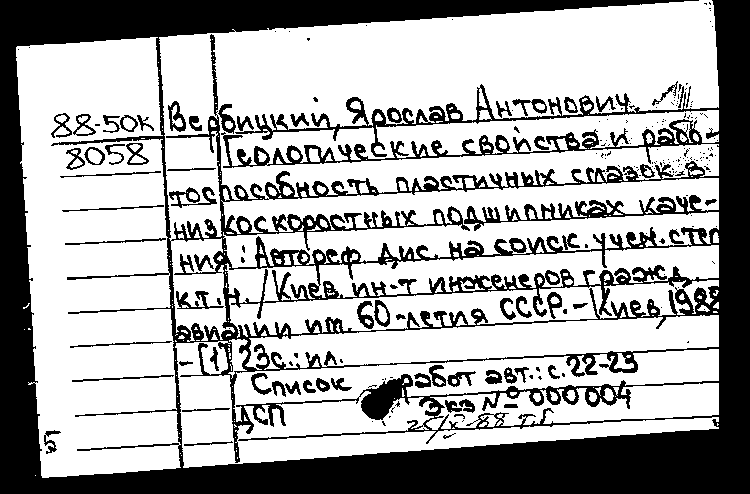 88-50к Вербицкий, Ярослав Антонович.
8058 Геологические свойства и рабо-
тоспособность пластичных смазок в
низкоскоростных подшипниках каче-
ния: Автореф. дис. на соиск. учен. степ
к.т.н. / Киев. ин-т инженеров гражд.
авиации им. 60-летия СССР. – Киев, 1988
– [1] 23с.: ил.
Список работ авт.: с. 22-23
ДСП Экз № 000004